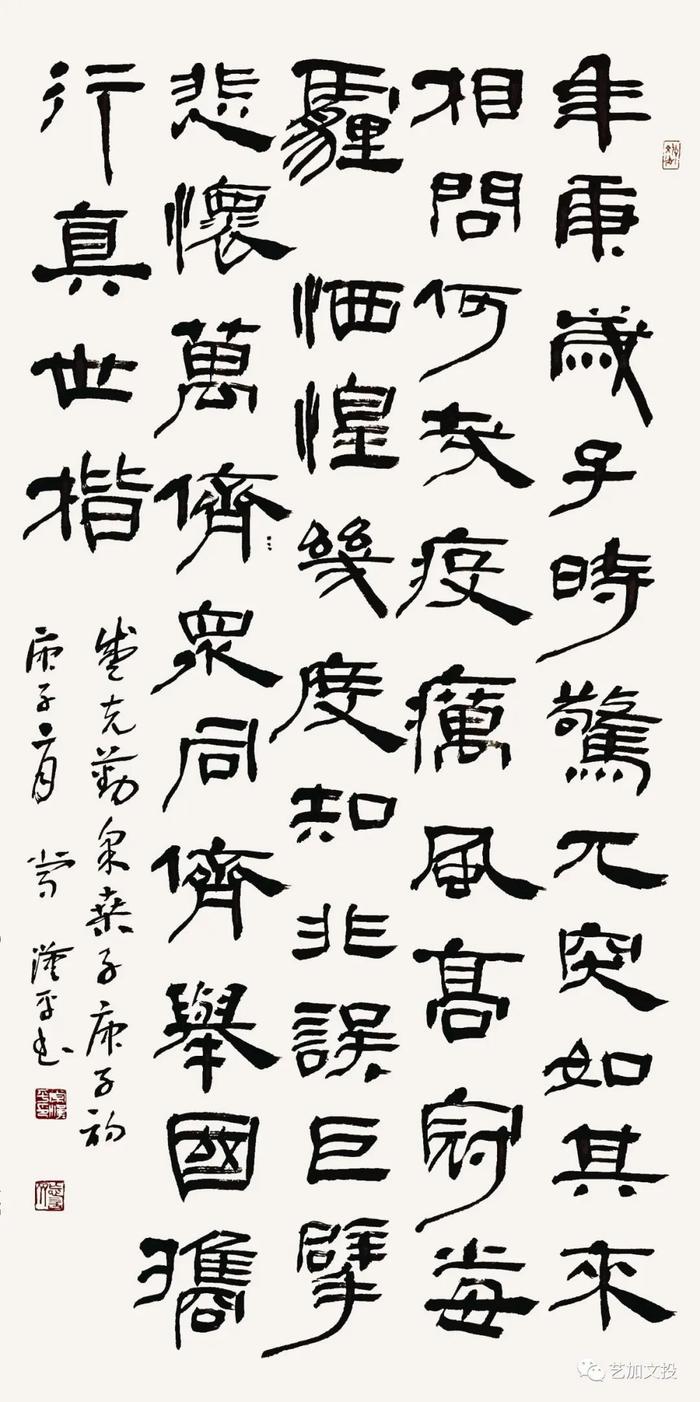 年庚歲子時驚兀突如其來
相問何哉疫癘風高冠毒
霾恓惶幾度知非誤巨擘
悲懷萬儕眾同儕舉國攜
行真世楷
克勤采桑子庚子
庚子六月漢平書
艺加文投